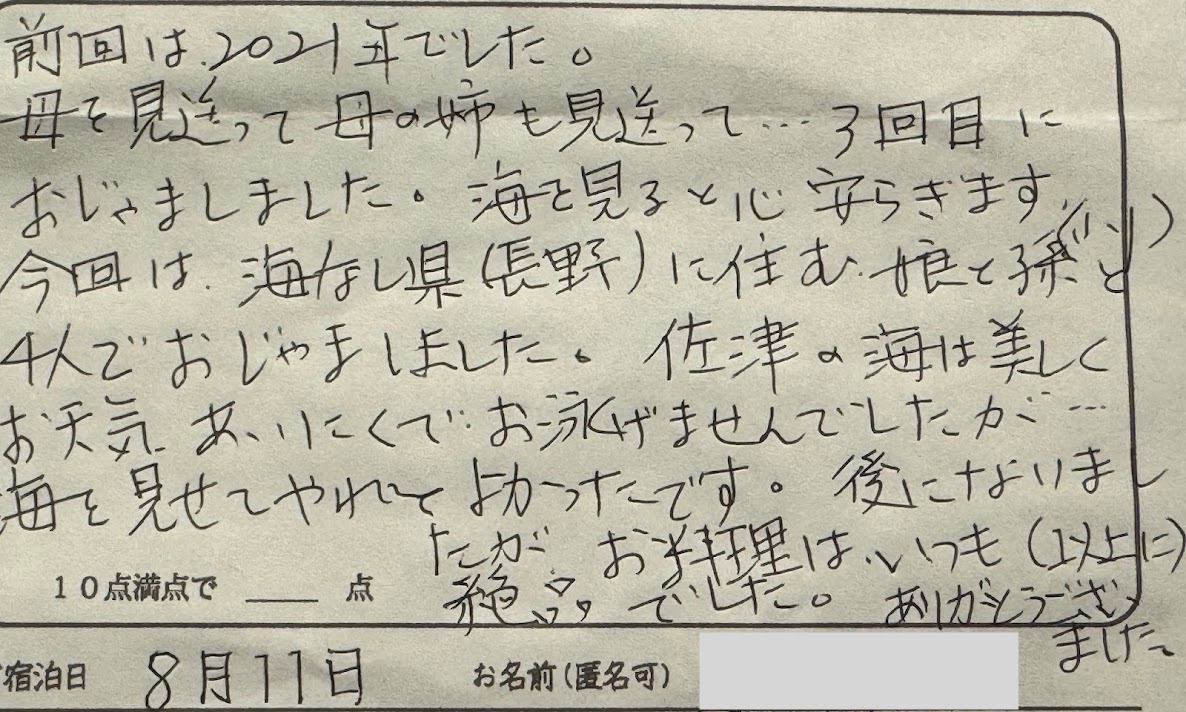 前回は、2021年でした。
母を見送って母の姉も見送って…3回目に
おじゃましました。海を見ると心安らぎます。
今回は、海なし県(長野)に住む娘と孫と
4人でおじゃましました。佐津の海は美しく
お天気あいにくでお泳げませんでしたが…
海を見せてやれてよかったです。後になりまし
たが、お料理は、いつも(以上に)
絶品でした。ありがとうござい
ました。
10点満点で 点
宿泊日 8月11日 お名前(匿名可)